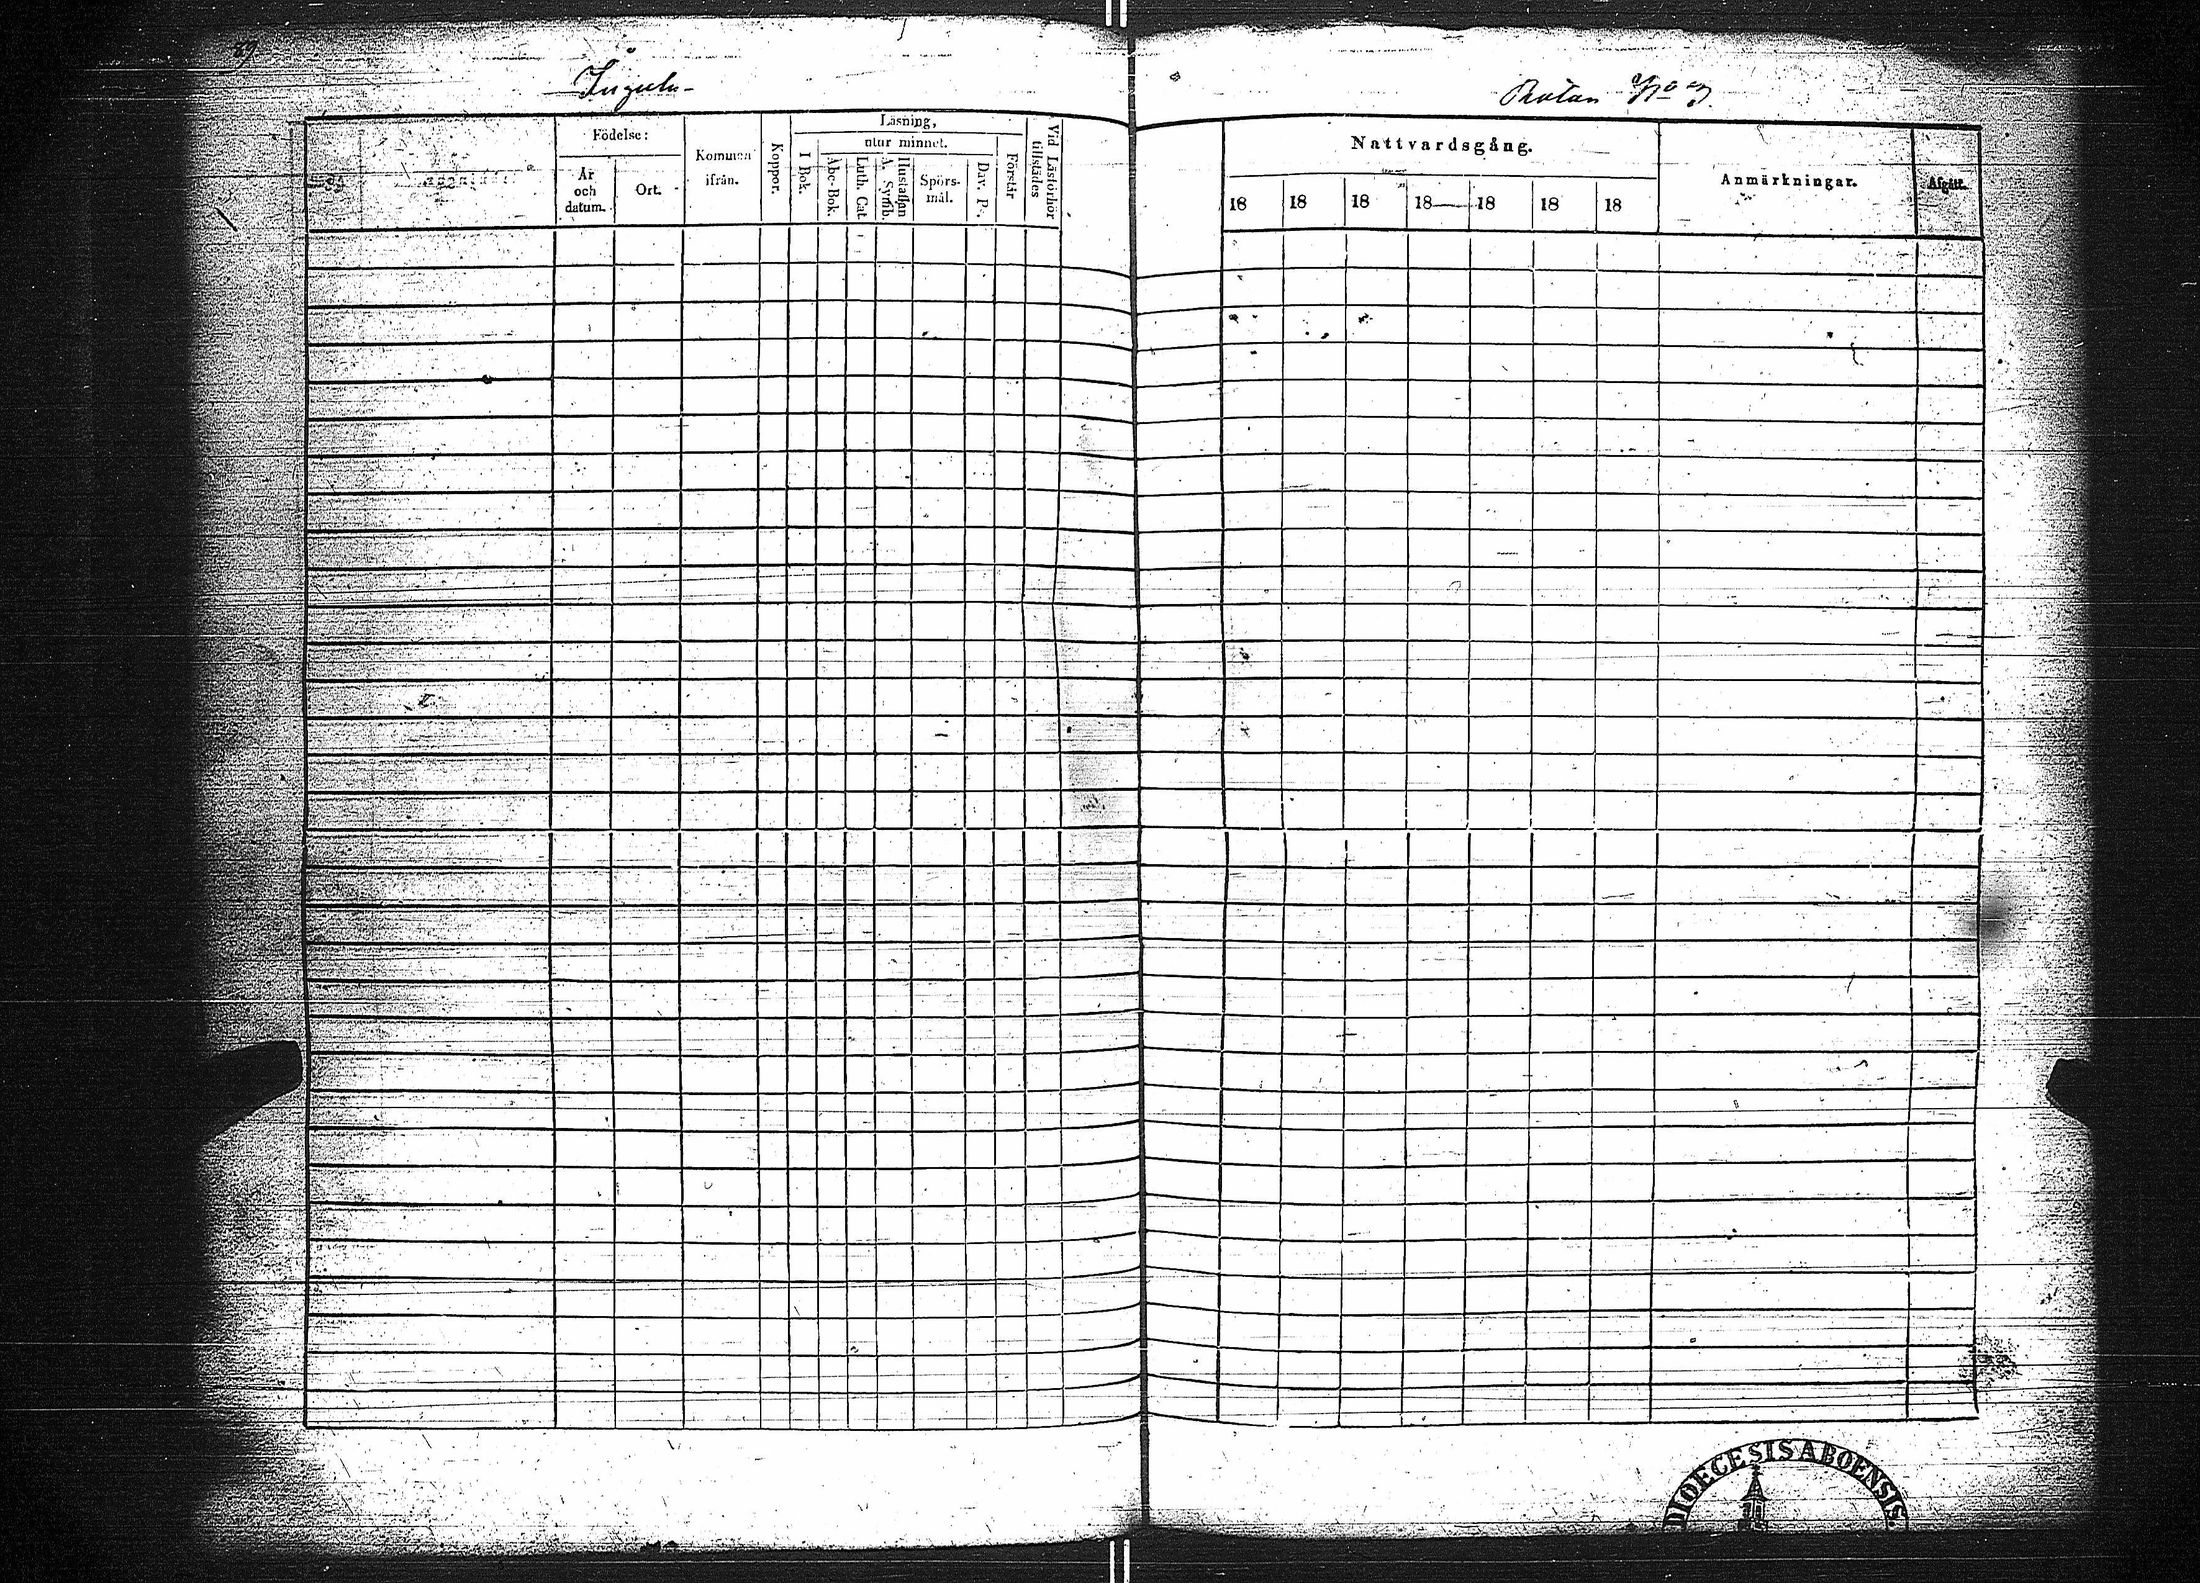 59
Rotan No 3.
Födelse:
År och datum.
Ort.
Kommen ifrån.
Koppor.
Läsning,
utur minnet.
I Bok.
Abc-Bok.
Luth. Cat.
Hustaflan
A. Symb.
Spörs-
mål.
Dav. Ps.
Förstår
Vid Läsförhör
tillstädes
Nattvardsgång.
18 18 18 18 18 18 18
Anmärkningar.
Afgått.
DIOECESIS ABOENSIS